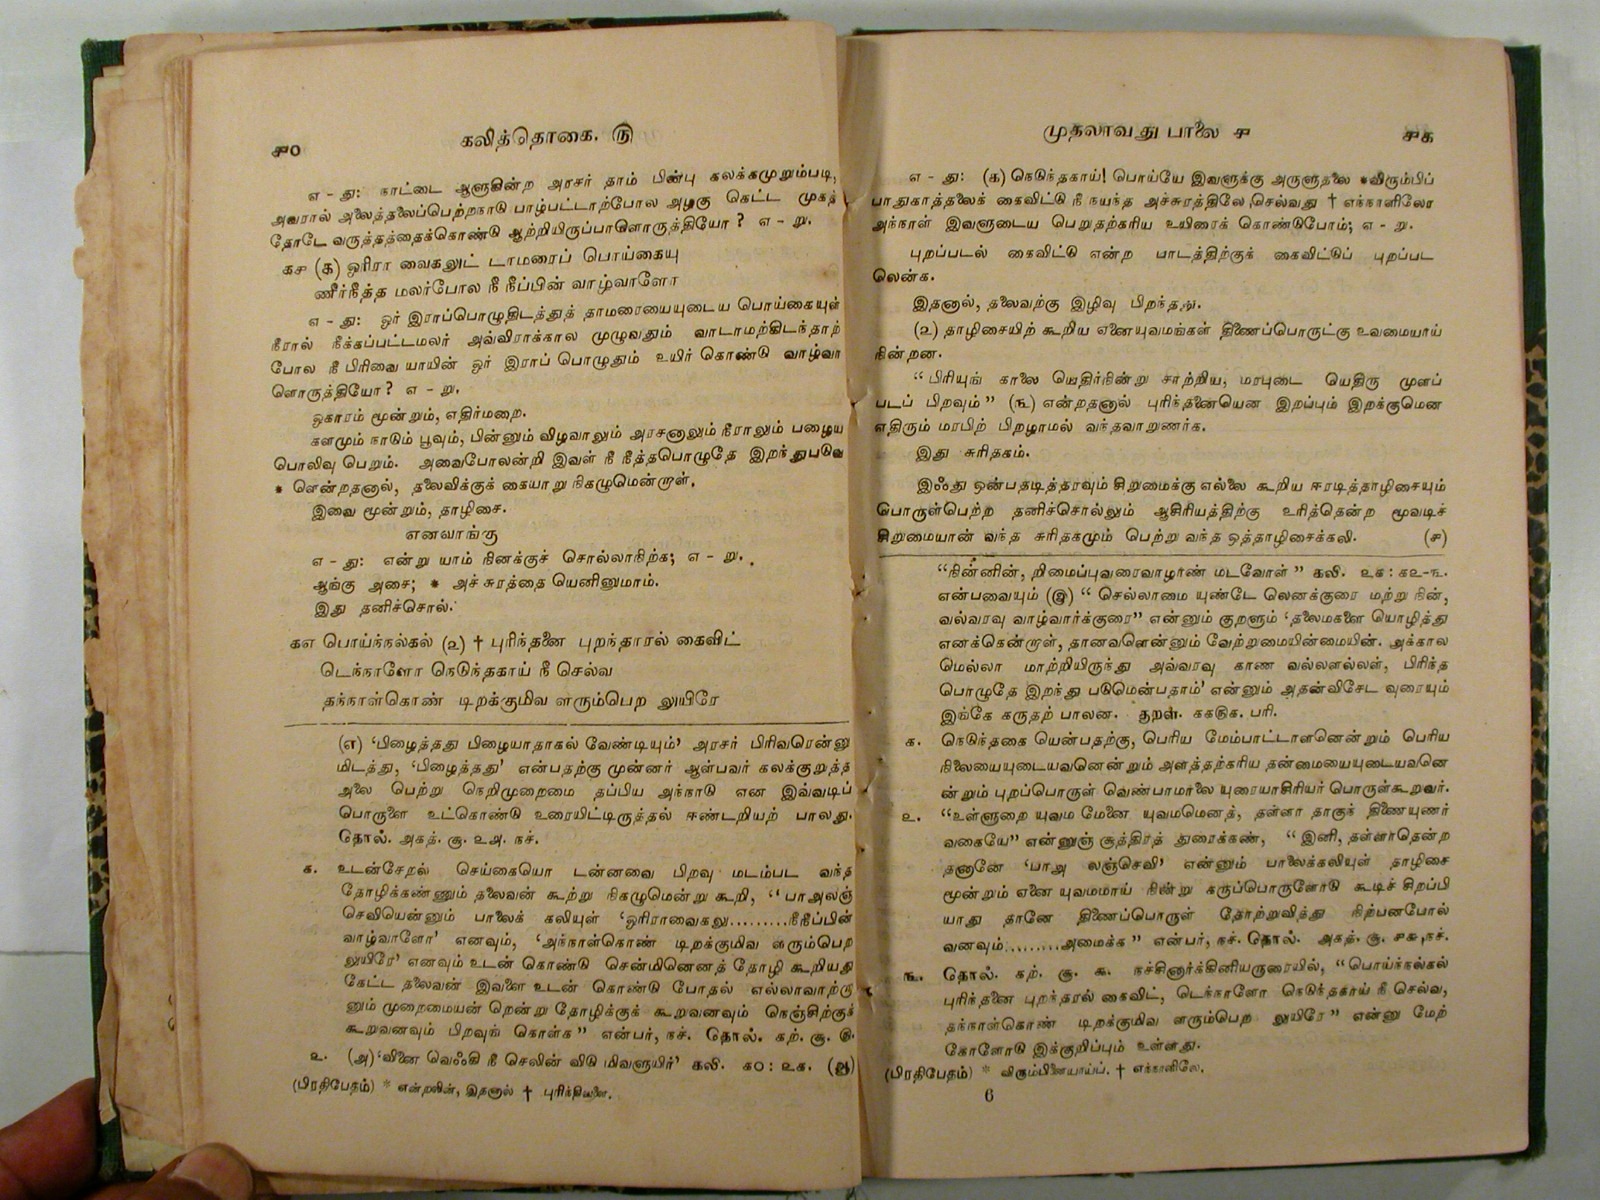 ௪௦
கலித்தொகை. ௫
எ - து: நாட்டை ஆளுகின்ற அரசர் தாம் பின்பு கலக்கமுறும்படி,
அவரால் அலைத்தலைப்பெற்றநாடு பாழ்பட்டாற்போல அழகு கெட்ட முகத்
தோடே வருத்தத்தைக்கொண்டு ஆற்றியிருப்பாளொருத்தியோ? எ - று.
௧௪ (௧) ஓரிரா வைகலுட் டாமரைப் பொய்கையு
ணீர்நீத்த மலர்போல நீ நீப்பின் வாழ்வாளோ
எ - து: ஓர் இராப்பொழுதிடத்துத் தாமரையையுடைய பொய்கையுள்
நீரால் நீக்கப்பட்டமலர் அவ்விராக்கால முழுவதும் வாடாமற்கிடந்தாற்
போல நீ பிரிவை யாயின் ஓர் இராப் பொழுதும் உயிர் கொண்டு வாழ்வா
ளொருத்தியோ? எ - று.
ஓகாரம் மூன்றும், எதிர்மறை.
களமும் நாடும் பூவும், பின்னும் விழவாலும் அரசனாலும் நீராலும் பழைய
பொலிவு பெறும். அவைபோலன்றி இவள் நீ நீத்தபொழுதே இறந்துபடுவ
* ளென்றதனால், தலைவிக்குக் கையாறு நிகழுமென்றாள்.
இவை மூன்றும், தாழிசை.
எனவாங்கு
எ - து: என்று யாம் நினக்குச் சொல்லாநிற்க; எ - று.
ஆங்கு அசை; * அச் சுரத்தை யெனினுமாம்.
இது தனிச்சொல்.
௧௭ பொய்ந்நல்கல் (௨) † புரிந்தனை புறந்தாரல் கைவிட்
டெந்நாளோ நெடுந்தகாய் நீ செல்வ
தந்நாள்கொண் டிறக்குமிவ ளரும்பெற லுயிரே
(எ) ‘பிழைத்தது பிழையாதாகல் வேண்டியும்’ அரசர் பிரிவரென்னு
மிடத்து, ‘பிழைத்தது’ என்பதற்கு முன்னர் ஆள்பவர் கலக்குறுத்த
அலை பெற்று நெறிமுறைமை தப்பிய அந்நாடு என இவ்வடிப்
பொருளை உட்கொண்டு உரையிட்டிருத்தல் ஈண்டறியற் பாலது.
தொல். அகத். சூ. ௨௮. நச்.
௧. உடன்சேறல் செய்கையொ டன்னவை பிறவு மடம்பட வந்த
தோழிக்கண்ணும் தலைவன் கூற்று நிகழுமென்று கூறி, “பாஅலஞ்
செவியென்னும் பாலைக் கலியுள் ‘ஓரிராவைகலு.........நீநீப்பின்
வாழ்வாளோ’ எனவும், ‘அந்நாள்கொண் டிறக்குமிவ ளரும்பெற
லுயிரே’ எனவும் உடன் கொண்டு சென்மினெனத் தோழி கூறியது
கேட்ட தலைவன் இவளை உடன் கொண்டு போதல் எல்லாவாற்றா
னும் முறைமையன் றென்று தோழிக்குக் கூறுவனவும் நெஞ்சிற்குக்
கூறுவனவும் பிறவுங் கொள்க” என்பர், நச். தொல். கற். சூ. ௫.
௨. (௮) ‘வினை வெஃகி நீ செலின் விடு மிவளுயிர்’ கலி. ௧௦: ௨௧. (ஆ)
(பிரதிபேதம்) * என்றலின், இதனால் † புரிந்தினை.
முதலாவது பாலை ௪
௪௧
எ - து: (௧) நெடுந்தகாய்! பொய்யே இவளுக்கு அருளுதலை *விரும்பிப்
பாதுகாத்தலைக் கைவிட்டு நீ நயந்த அச்சுரத்திலே செல்வது † எந்நாளிலோ
அந்நாள் இவளுடைய பெறுதற்கரிய உயிரைக் கொண்டுபோம்; எ - று.
புறப்படல் கைவிட்டு என்ற பாடத்திற்குக் கைவிட்டுப் புறப்பட
லென்க.
இதனால், தலைவற்கு இழிவு பிறந்தது.
(௨) தாழிசையிற் கூறிய ஏனையுவமங்கள் திணைப்பொருட்கு உவமையாய்
நின்றன.
“பிரியுங் காலை யெதிர்நின்று சாற்றிய, மரபுடை யெதிரு முளப்
படப் பிறவும்” (௩) என்றதனால் புரிந்தனையென இறப்பும் இறக்குமென
எதிரும் மரபிற் பிறழாமல் வந்தவாறுணர்க.
இது சுரிதகம்.
இஃது ஒன்பதடித்தரவும் சிறுமைக்கு எல்லை கூறிய ஈரடித்தாழிசையும்
பொருள்பெற்ற தனிச்சொல்லும் ஆசிரியத்திற்கு உரித்தென்ற மூவடிச்
சிறுமையான் வந்த சுரிதகமும் பெற்று வந்த ஒத்தாழிசைக்கலி. (௪)
“நின்னின், றிமைப்புவரைவாழாண் மடவோள்” கலி. ௨௧: ௧௨-௩.
என்பவையும் (இ) “ செல்லாமை யுண்டே லெனக்குரை மற்று நின்,
வல்வரவு வாழ்வார்க்குரை” என்னும் குறளும் ‘தலைமகளை யொழித்து
எனக்கென்றாள், தானவளென்னும் வேற்றுமையின்மையின். அக்கால
மெல்லா மாற்றியிருந்து அவ்வரவு காண வல்லளல்லள், பிரிந்த
பொழுதே இறந்து படுமென்பதாம்’ என்னும் அதன்விசேட வுரையும்
இங்கே கருதற் பாலன. குறள். ௧௧௫௧. பரி.
௧. நெடுந்தகை யென்பதற்கு, பெரிய மேம்பாட்டாளனென்றும் பெரிய
நிலையையுடையவனென்றும் அளத்தற்கரிய தன்மையையுடையவனெ
ன்றும் புறப்பொருள் வெண்பாமாலை யுரையாசிரியர் பொருள்கூறுவர்.
௨. “உள்ளுறை யுவம மேனை யுவமமெனத், தள்ளா தாகுந் திணையுணர்
வகையே” என்னுஞ் சூத்திரத் துரைக்கண், “ இனி, தள்ளாதென்ற
தனானே ‘பாஅ லஞ்செவி’ என்னும் பாலைக்கலியுள் தாழிசை
மூன்றும் ஏனை யுவமமாய் நின்று கருப்பொருளோடு கூடிச் சிறப்பி
யாது தானே திணைப்பொருள் தோற்றுவித்து நிற்பனபோல்
வனவும்........அமைக்க” என்பர், நச். தொல். அகத். சூ. ௪௬, நச்.
௩. தொல். கற். சூ. ௬. நச்சினார்க்கினியருரையில், “பொய்ந்நல்கல்
புரிந்தனை புறந்தரல் கைவிட், டெந்நாளோ நெடுந்தகாய் நீ செல்வ,
தந்நாள்கொண் டிறக்குமிவ ளரும்பெற லுயிரே” என்னு மேற்
கோளோடு இக்குறிப்பும் உள்ளது.
(பிரதிபேதம்) * விரும்பினையாய்ப். † எந்நாளிலே.
6